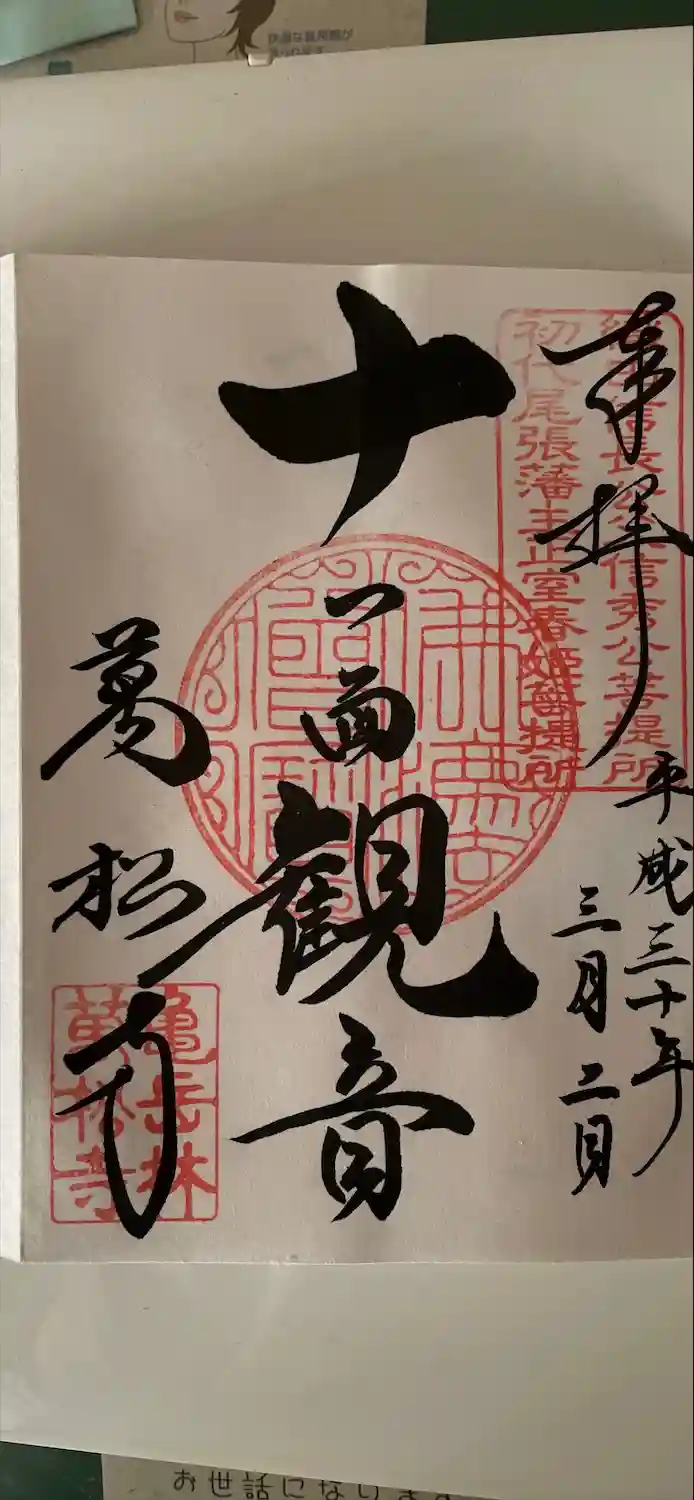 奉拝
織田信長公父信秀公菩提所
初代尾張藩主正室春姫菩提所
平成三十年
三月二日
十一面観音
萬松寺
亀岳林
萬松寺
お世話になります